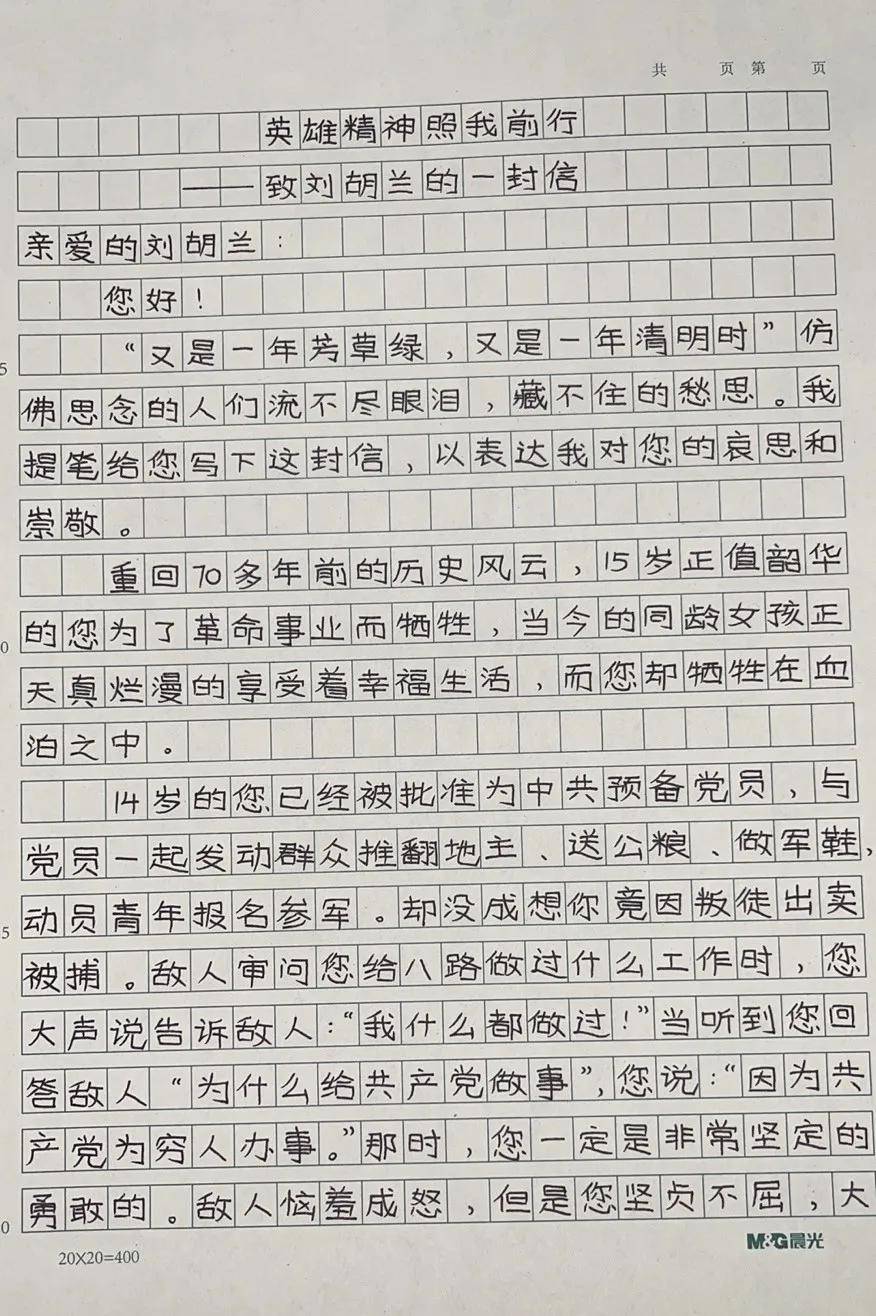 共 页 第 页
英雄精神照我前行
——致刘胡兰的一封信
亲爱的刘胡兰：
您好！
“又是一年芳草绿，又是一年清明时”仿
5
佛思念的人们流不尽眼泪，藏不住的愁思。我
提笔给您写下这封信，以表达我对您的哀思和
崇敬。
重回70多年前的历史风云，15岁正值韶华
的您为了革命事业而牺牲，当今的同龄女孩正
0
天真烂漫的享受着幸福生活，而您却牺牲在血
泊之中。
14岁的您已经被批准为中共预备党员，与
党员一起发动群众推翻地主、送公粮、做军鞋，
动员青年报名参军。却没成想你竟因叛徒出卖
5
被捕。敌人审问您给八路做过什么工作时，您
大声说告诉敌人：“我什么都做过！”当听到您回
答敌人“为什么给共产党做事”，您说：“因为共
产党为穷人办事。”那时，您一定是非常坚定的
勇敢的。敌人恼羞成怒，但是您坚贞不屈，大
0
20X20=400
M&G晨光